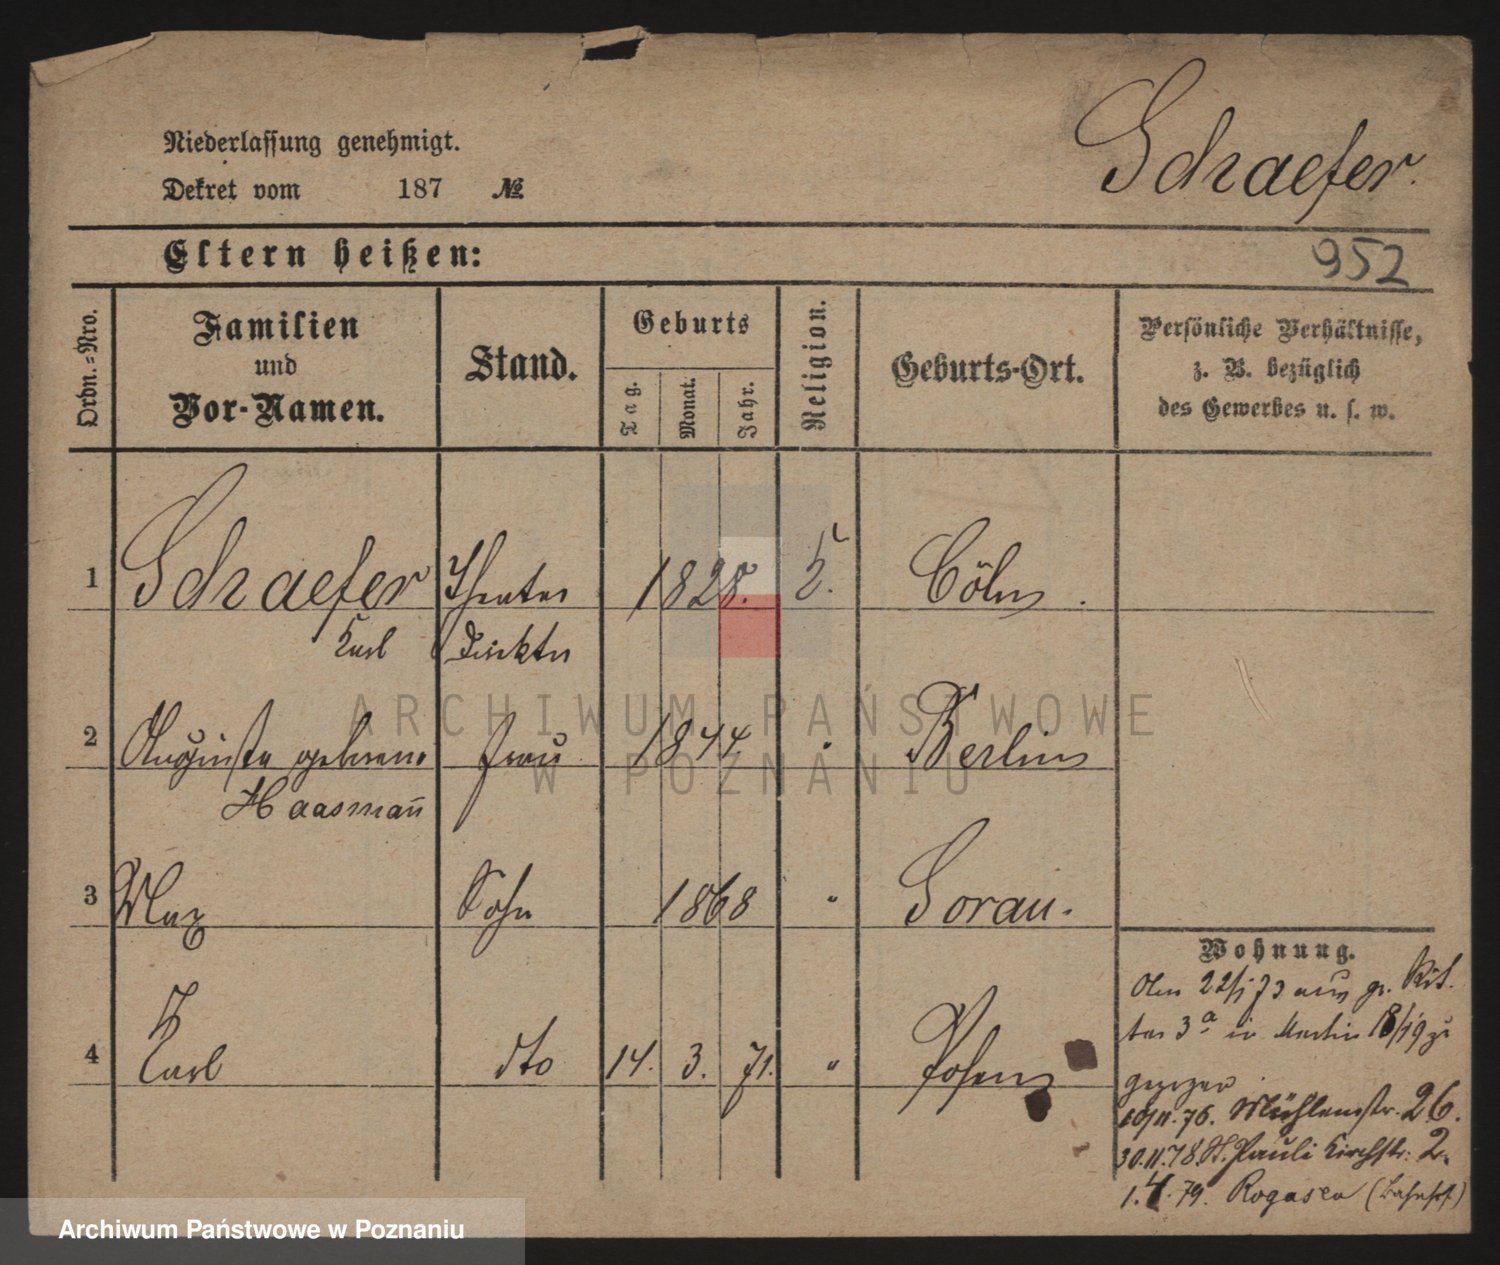 Niederlassung genehmigt.
Dekret vom 187 №
Schaefer.
Eltern heißen:
952
Ordn.-Nro.
Familien
und
Vor-Namen.
Stand.
Geburts
Tag.
Monat.
Jahr.
Religion.
Geburts-Ort.
Persönliche Verhältnisse,
z. B. bezüglich
des Gewerbes u. s. w.
1 Schaefer Theater 1828. Cöln.
Karl Direktor
2 Auguste geborene Frau 1844 Berlin
Haasmañ
3 Max Sohn 1868 " Sorau.
4 Karl dto 14. 3. 71. " Posen
Wohnung.
22/1 73 aus gr. Rit-
ter 3a in 18/19 zu
gezogen
10/11. 76. Mühlenstr. 26.
30.11.78. St. Pauli Kirchstr. 2.
1.4.79. Rogasen (Bahnhof)
ARCHIWUM PAŃSTWOWE
W POZNANIU
Archiwum Państwowe w Poznaniu